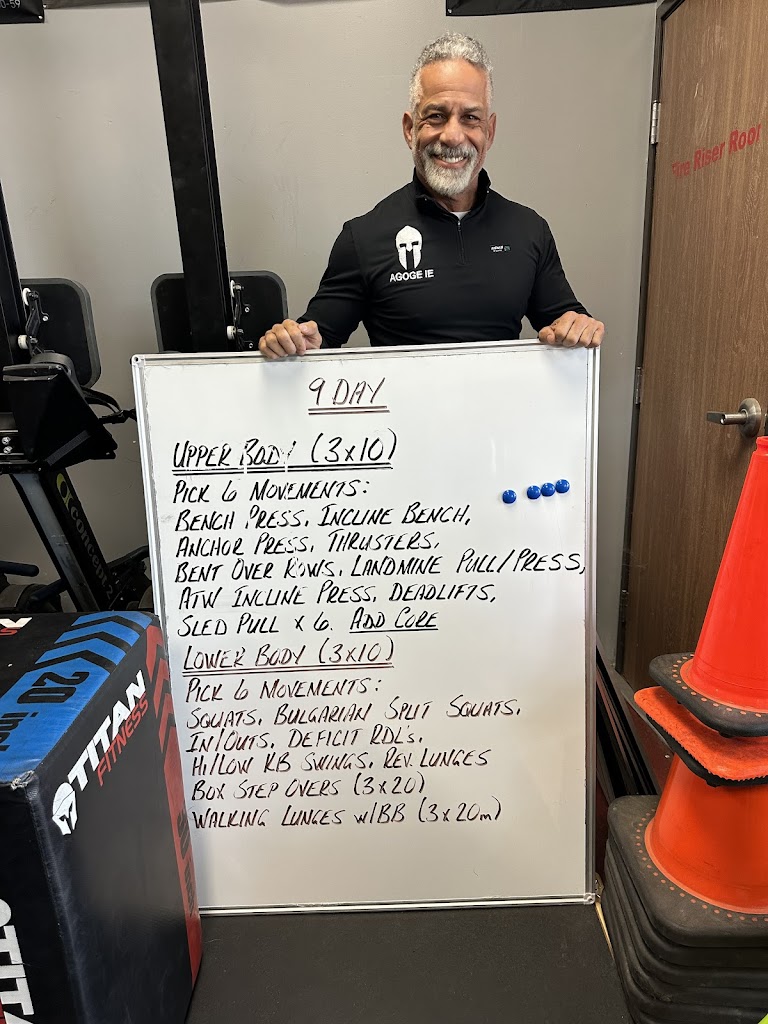 0-59
AGOGE IE
Fire Riser Roo
9 DAY
UPPER BODY (3x10)
PICK 6 MOVEMENTS:
BENCH PRESS, INCLINE BENCH,
ANCHOR PRESS, THRUSTERS,
BENT OVER ROWS, LANDMINE PULL/PRESS,
ATW INCLINE PRESS, DEADLIFTS,
SLED PULL x 6. ADD CORE
LOWER BODY (3x10)
PICK 6 MOVEMENTS:
SQUATS, BULGARIAN SPLIT SQUATS,
IN/OUTS, DEFICIT RDL's,
HI/LOW KB SWINGS, REV. LUNGES
BOX STEP OVERS (3x20)
WALKING LUNGES w/BB (3x20m)
concept2
20 inc
TITAN
FITNESS
TITA